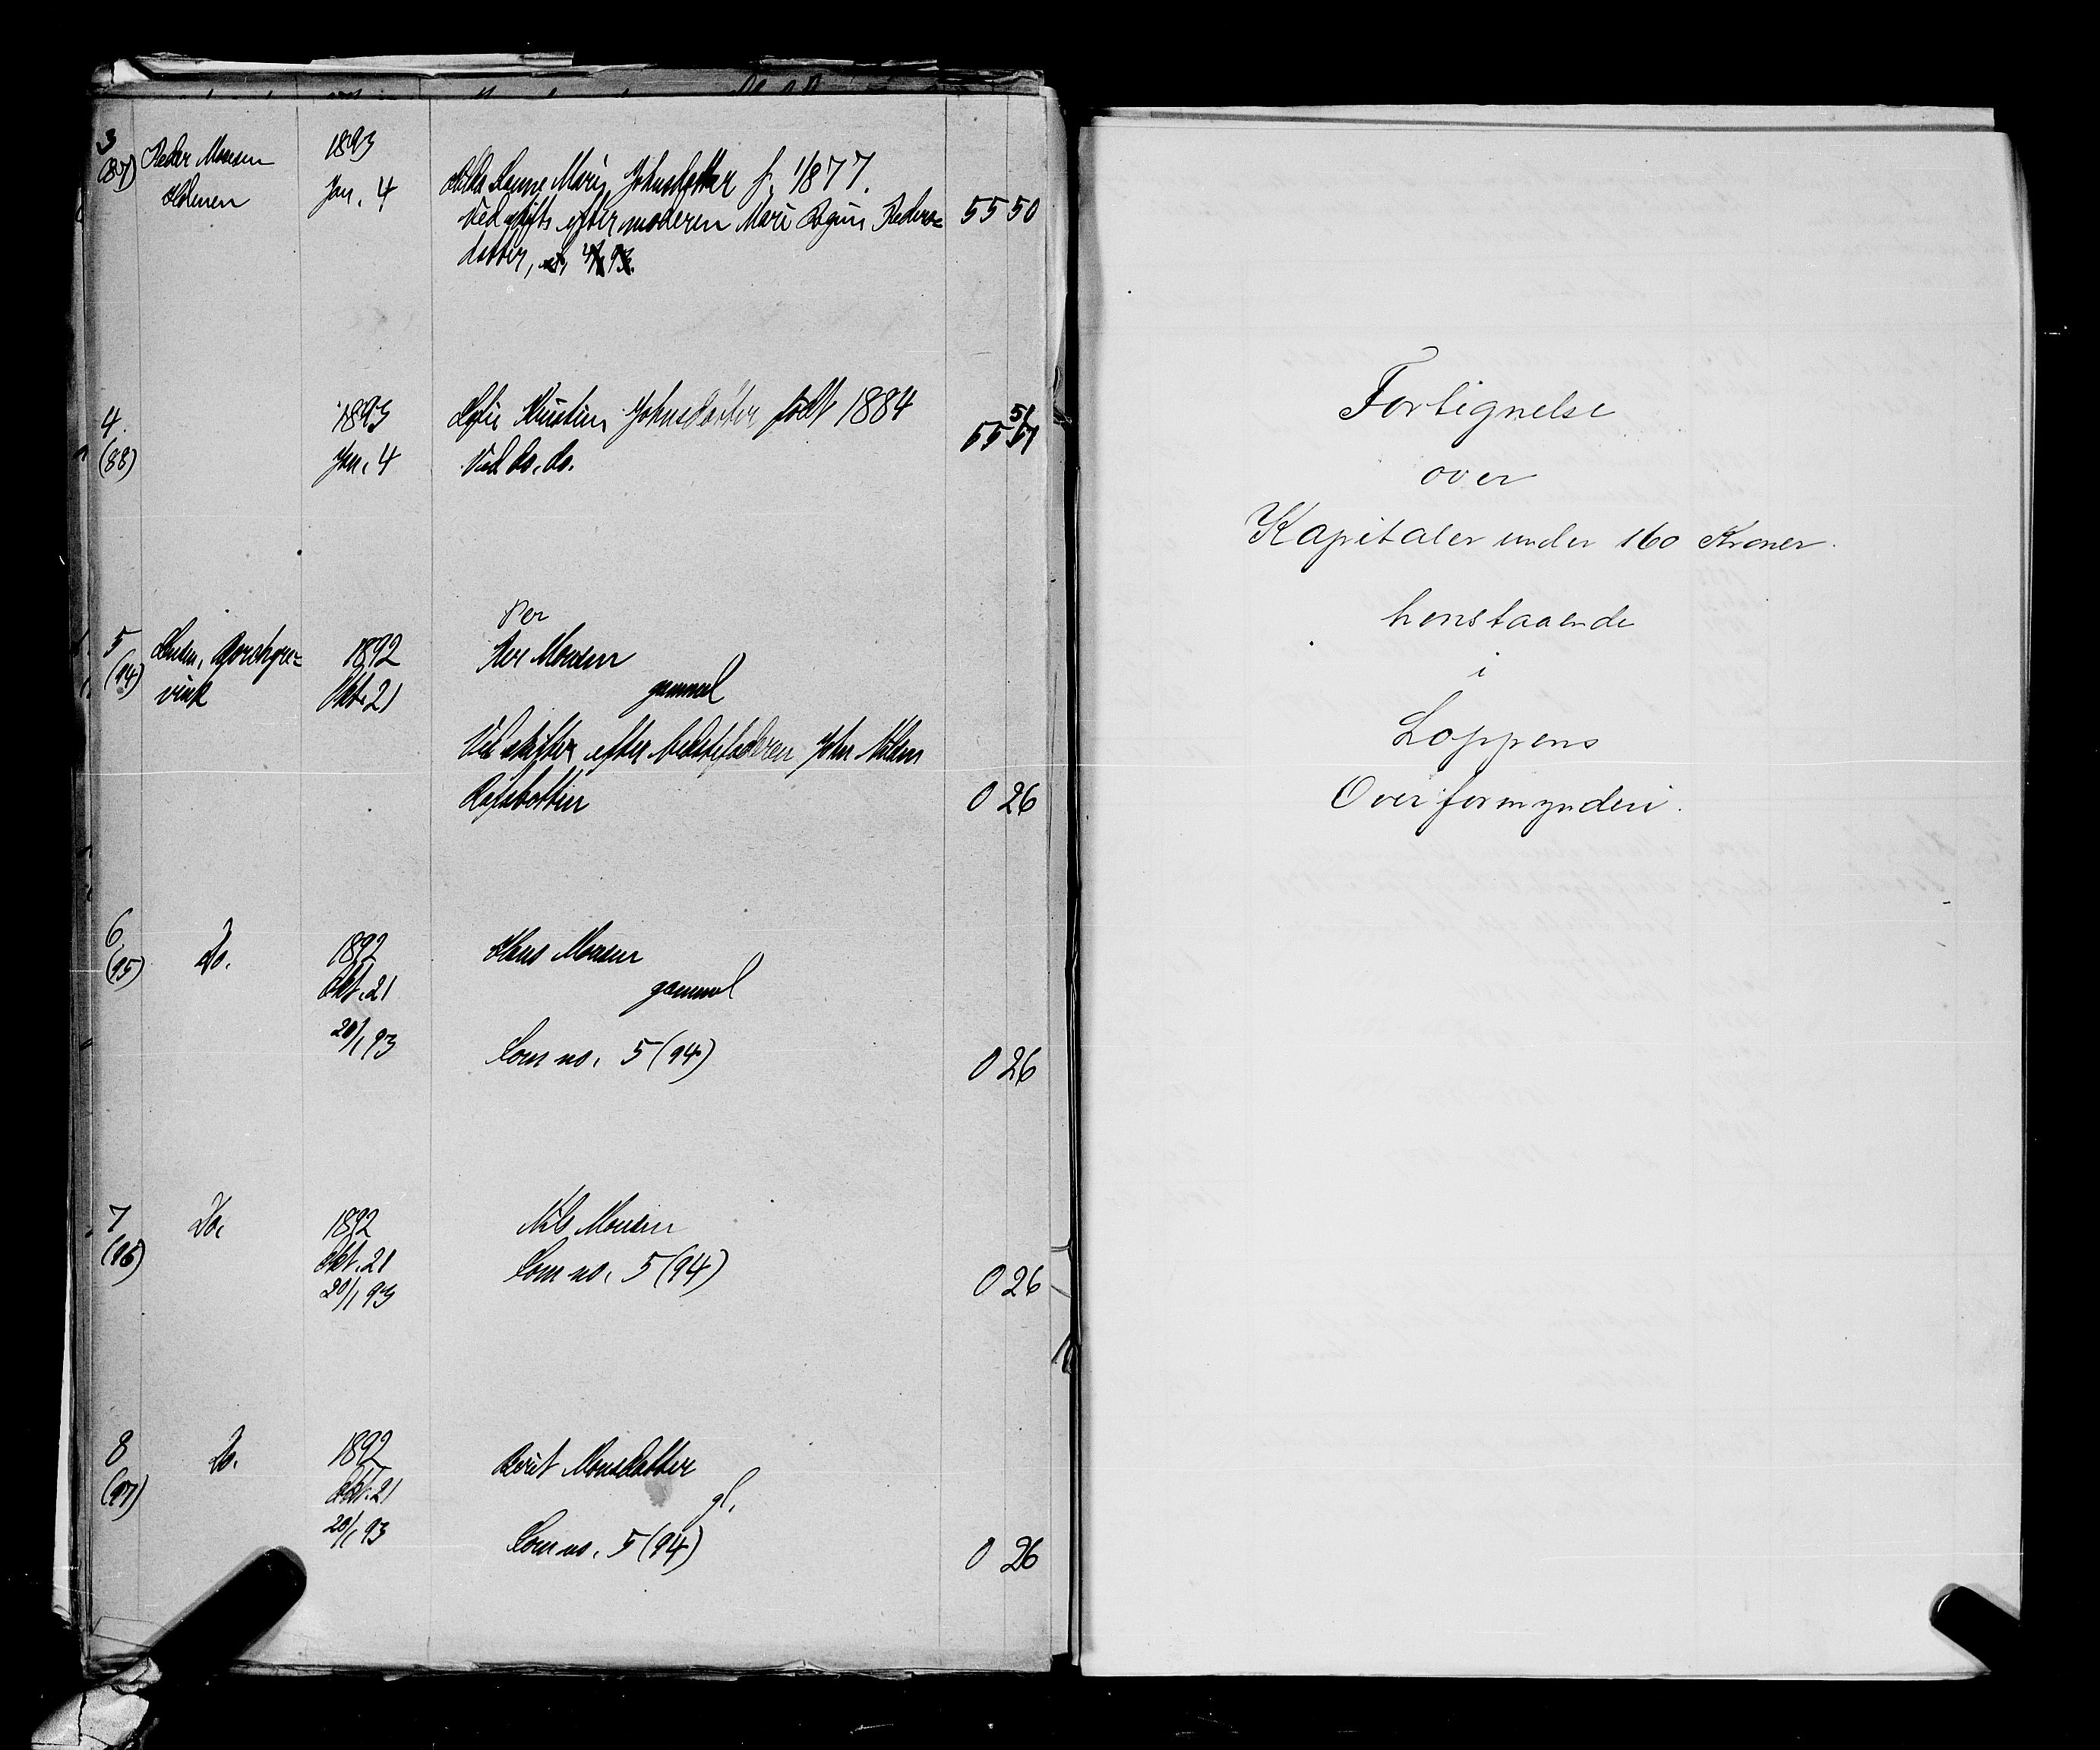 3
(87)
Peder Monsen
Holmen
1893
Jan. 4
Hilda Hanne Marie Johnsdatter f. 1877.
Ved skifte efter moderen Mari Ragna Peders=
datter,
55 50
4
(88)
1893
Jan. 4
Kristin Johnsdatter født 1884
Ved do. do.
51
55 51
5
(94)
vink
1892
Okt. 21
Per
Per Monsen
gammel
Ved skifter efter bedstefaderen John Nilsen
Rafsbotten
0 26
6
(95)
Do.
1892
Okt. 21
20/1 93
Hans Monsen
gammel
Som no. 5 (94)
0 26
7
(96)
Do.
1892
Okt. 21
20/1 93
Nils Monsen
Som no. 5 (94)
0 26
8
(97)
Do.
1892
Okt. 21
20/1 93
Berit Monsdatter
gl.
Som no. 5 (94)
0 26
Fortegnelse
over
Kapitaler under 160 Kroner.
henstaaende
i
Loppens
Overformynderi.